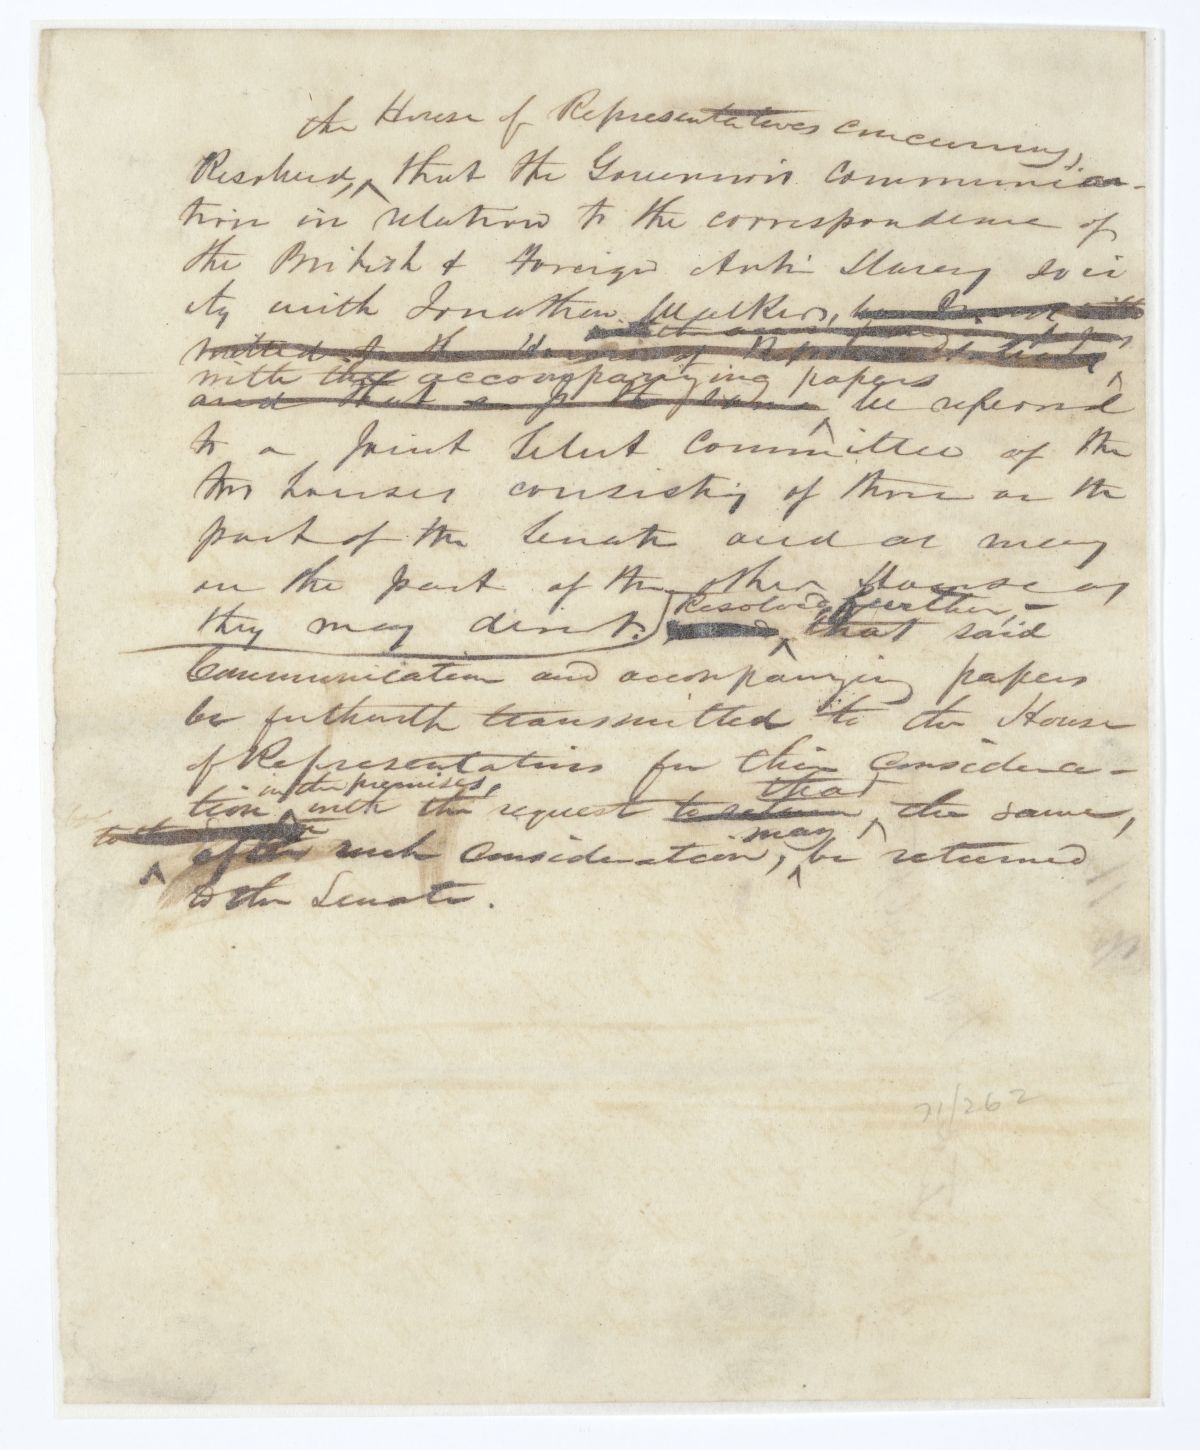 the House of Representatives concurring,
Resolved, that the Governor's communica-
tion in relation to the correspondence of
the British & Foreign Anti Slavery Soci
ety with Jonathan Walker, be
mitted to the House of
with the accompanying papers
and that the same be referred
to a Joint Select Committee of the
two houses consisting of three on the
part of the Senate and as many
on the part of the other House as
they may direct. Resolved further,
that said
Communication and accompanying papers
be forthwith transmitted to the House
of Representatives for their considera-
in the premises,
tion with the request to return that the same,
to the
after such consideration, may be returned
to the Senate.
71/262